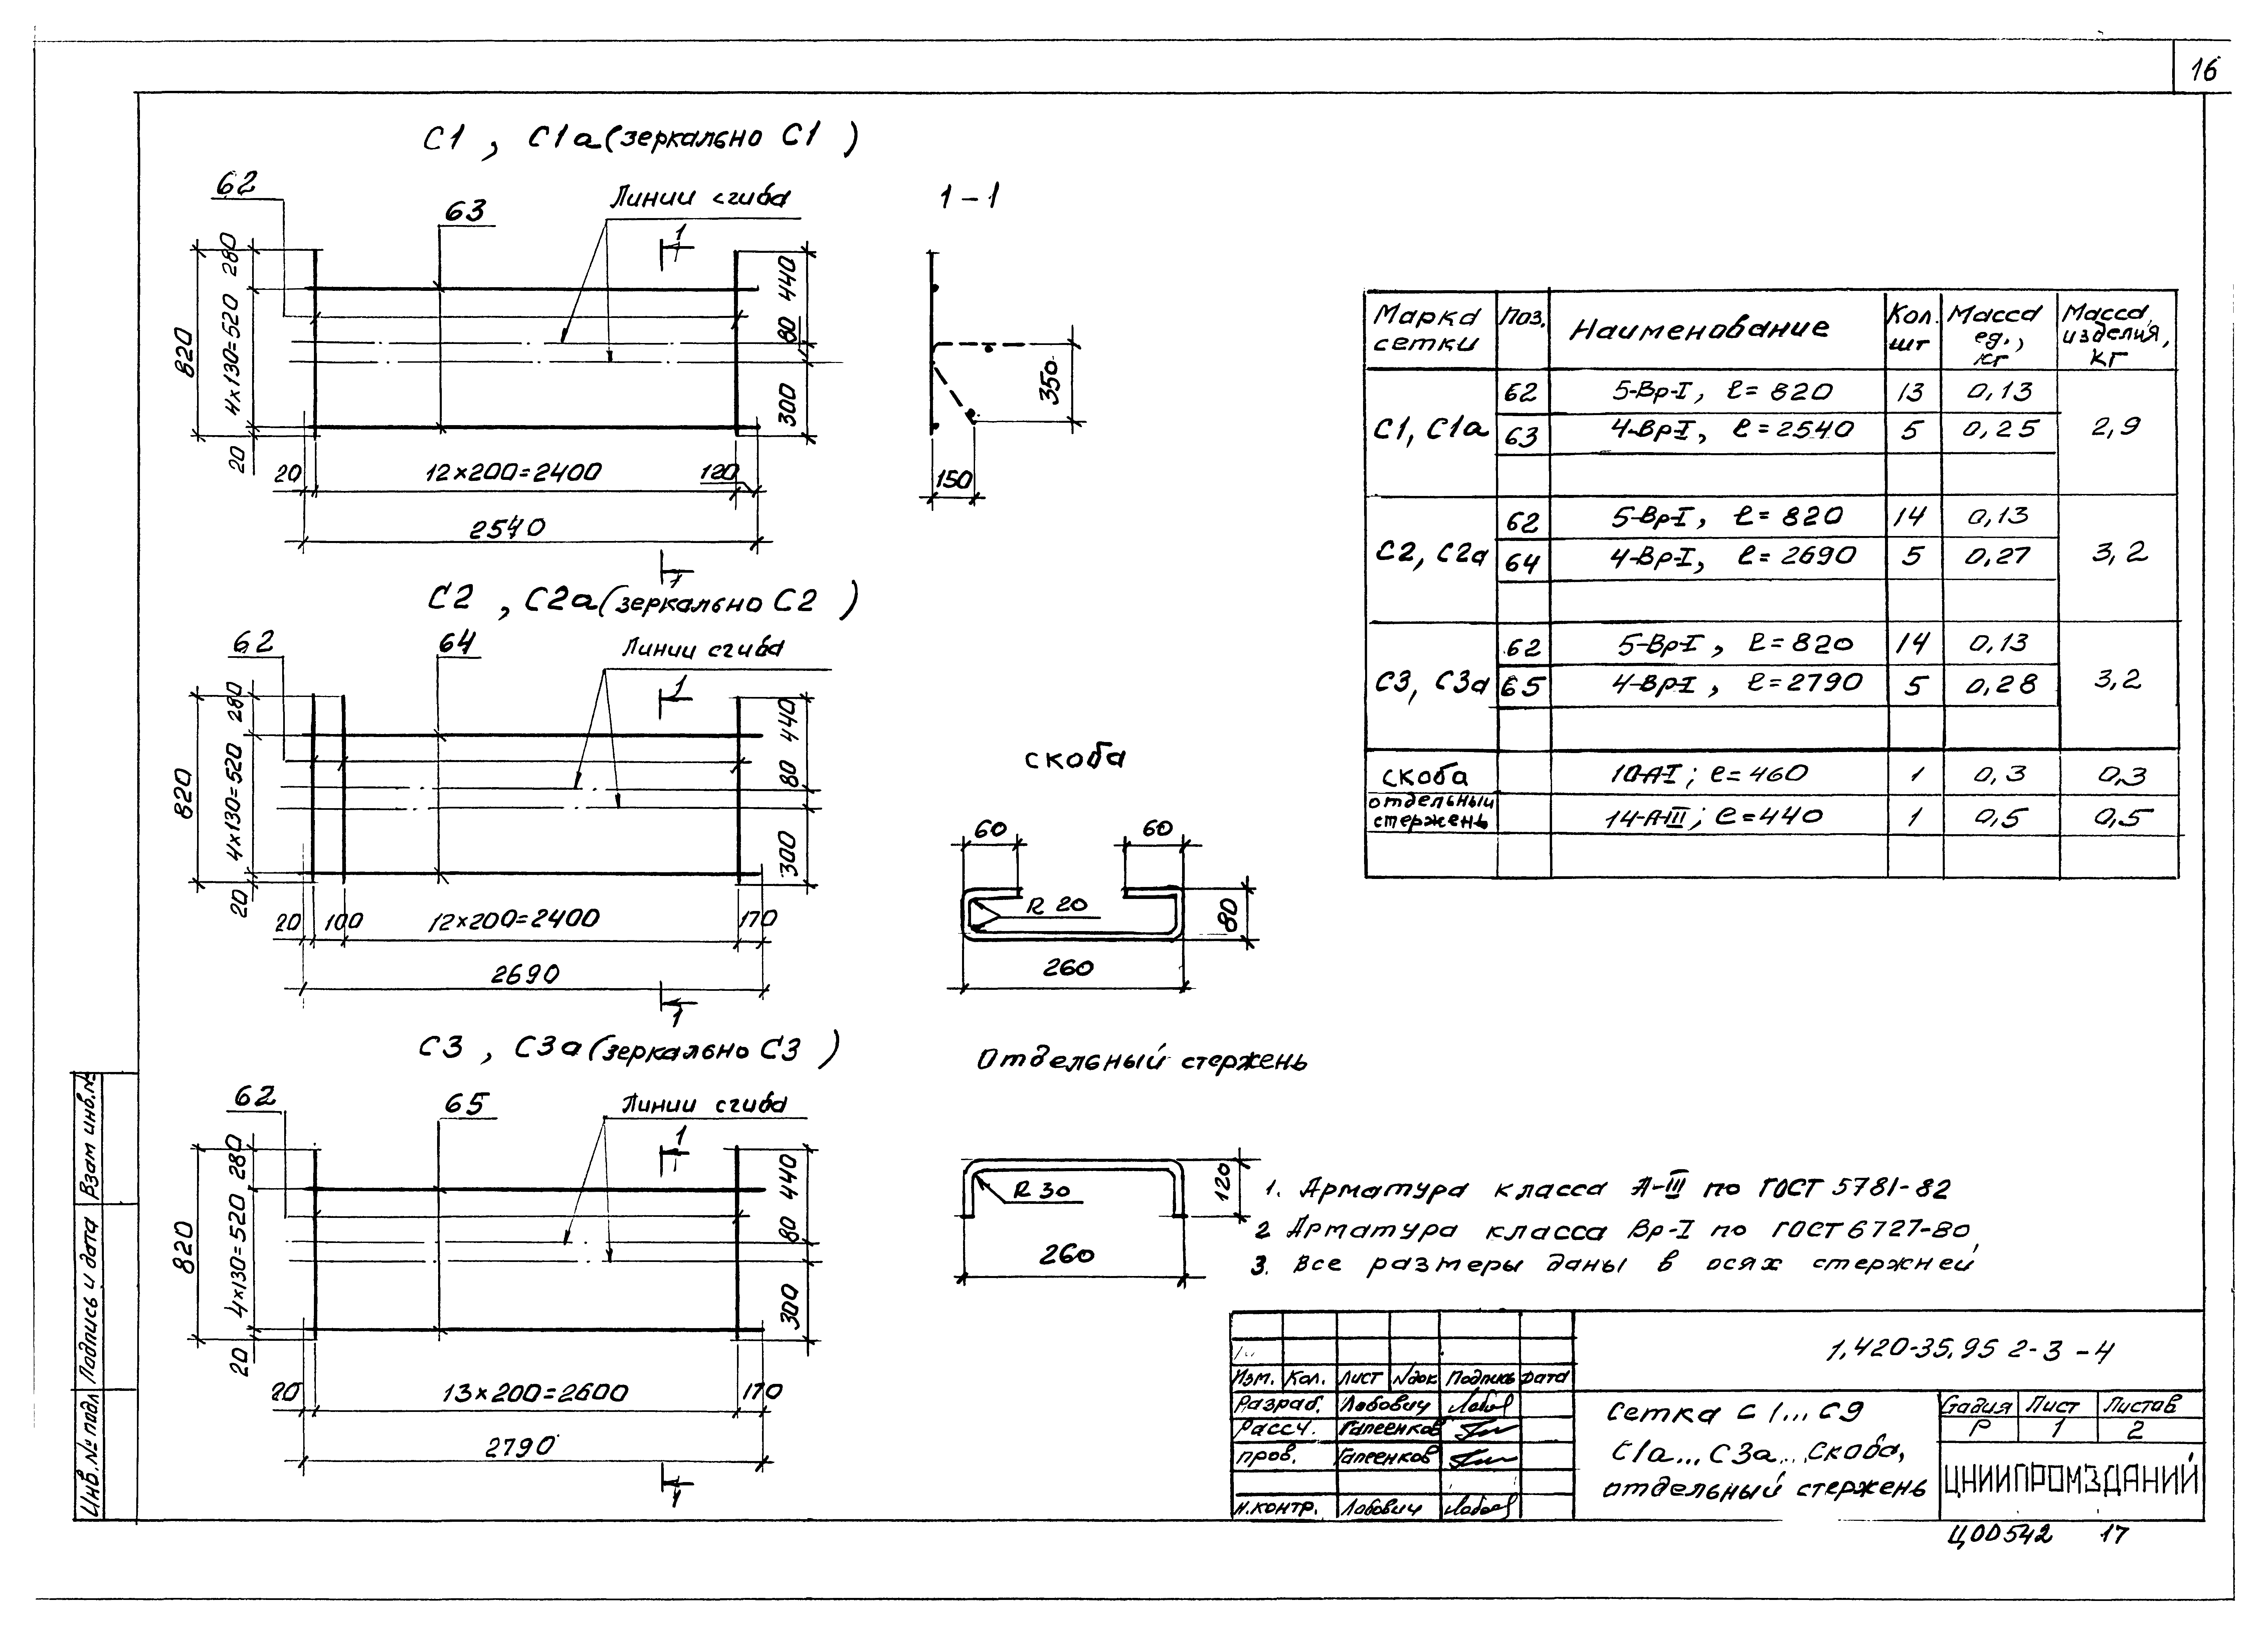 16
С1 , С1а (зеркально С1 )
62
63
Линии сгиба
1
1 - 1
820
280
4×130=520
20
440
80
300
20
12×200=2400
120
2540
1
350
150
С2 , С2а (зеркально С2 )
62
64
Линии сгиба
1
820
280
4×130=520
20
440
80
300
20
100
12×200=2400
170
2690
1
С3 , С3а (зеркально С3 )
62
65
Линии сгиба
1
820
280
4×130=520
20
440
80
300
20
13×200=2600
170
2790
1
скоба
60
60
R 20
80
260
Отдельный стержень
R 30
120
260
Марка сетки Поз. Наименование Кол. шт Масса ед., кг Масса изделия, кг
С1, С1а 62 5-Вр-I, ℓ= 820 13 0,13 2,9
63 4-Вр-I, ℓ=2540 5 0,25
С2, С2а 62 5-Вр-I, ℓ= 820 14 0,13 3,2
64 4-Вр-I, ℓ= 2690 5 0,27
С3, С3а 62 5-Вр-I, ℓ=820 14 0,13 3,2
65 4-Вр-I, ℓ=2790 5 0,28
скоба 10-А-I; ℓ=460 1 0,3 0,3
отдельный стержень 14-А-III; ℓ=440 1 0,5 0,5
1. Арматура класса А-III по ГОСТ 5781-82
2 Арматура класса Вр-I по ГОСТ 6727-80,
3. Все размеры даны в осях стержней
1.420-35.95 2-3 -4
Изм. Кол. Лист №док Подпись Дата
Разраб. Лобович
Рассч. Гапеенков
пров. Гапеенков
Н.контр. Лобович
Сетка С1...С9
С1а...С3а... Скоба,
отдельный стержень
Стадия Лист Листов
Р 1 2
ЦНИИПРОМЗДАНИЙ
Ц00542 17
Взам инв.№
Подпись и дата
Инв.№ подл